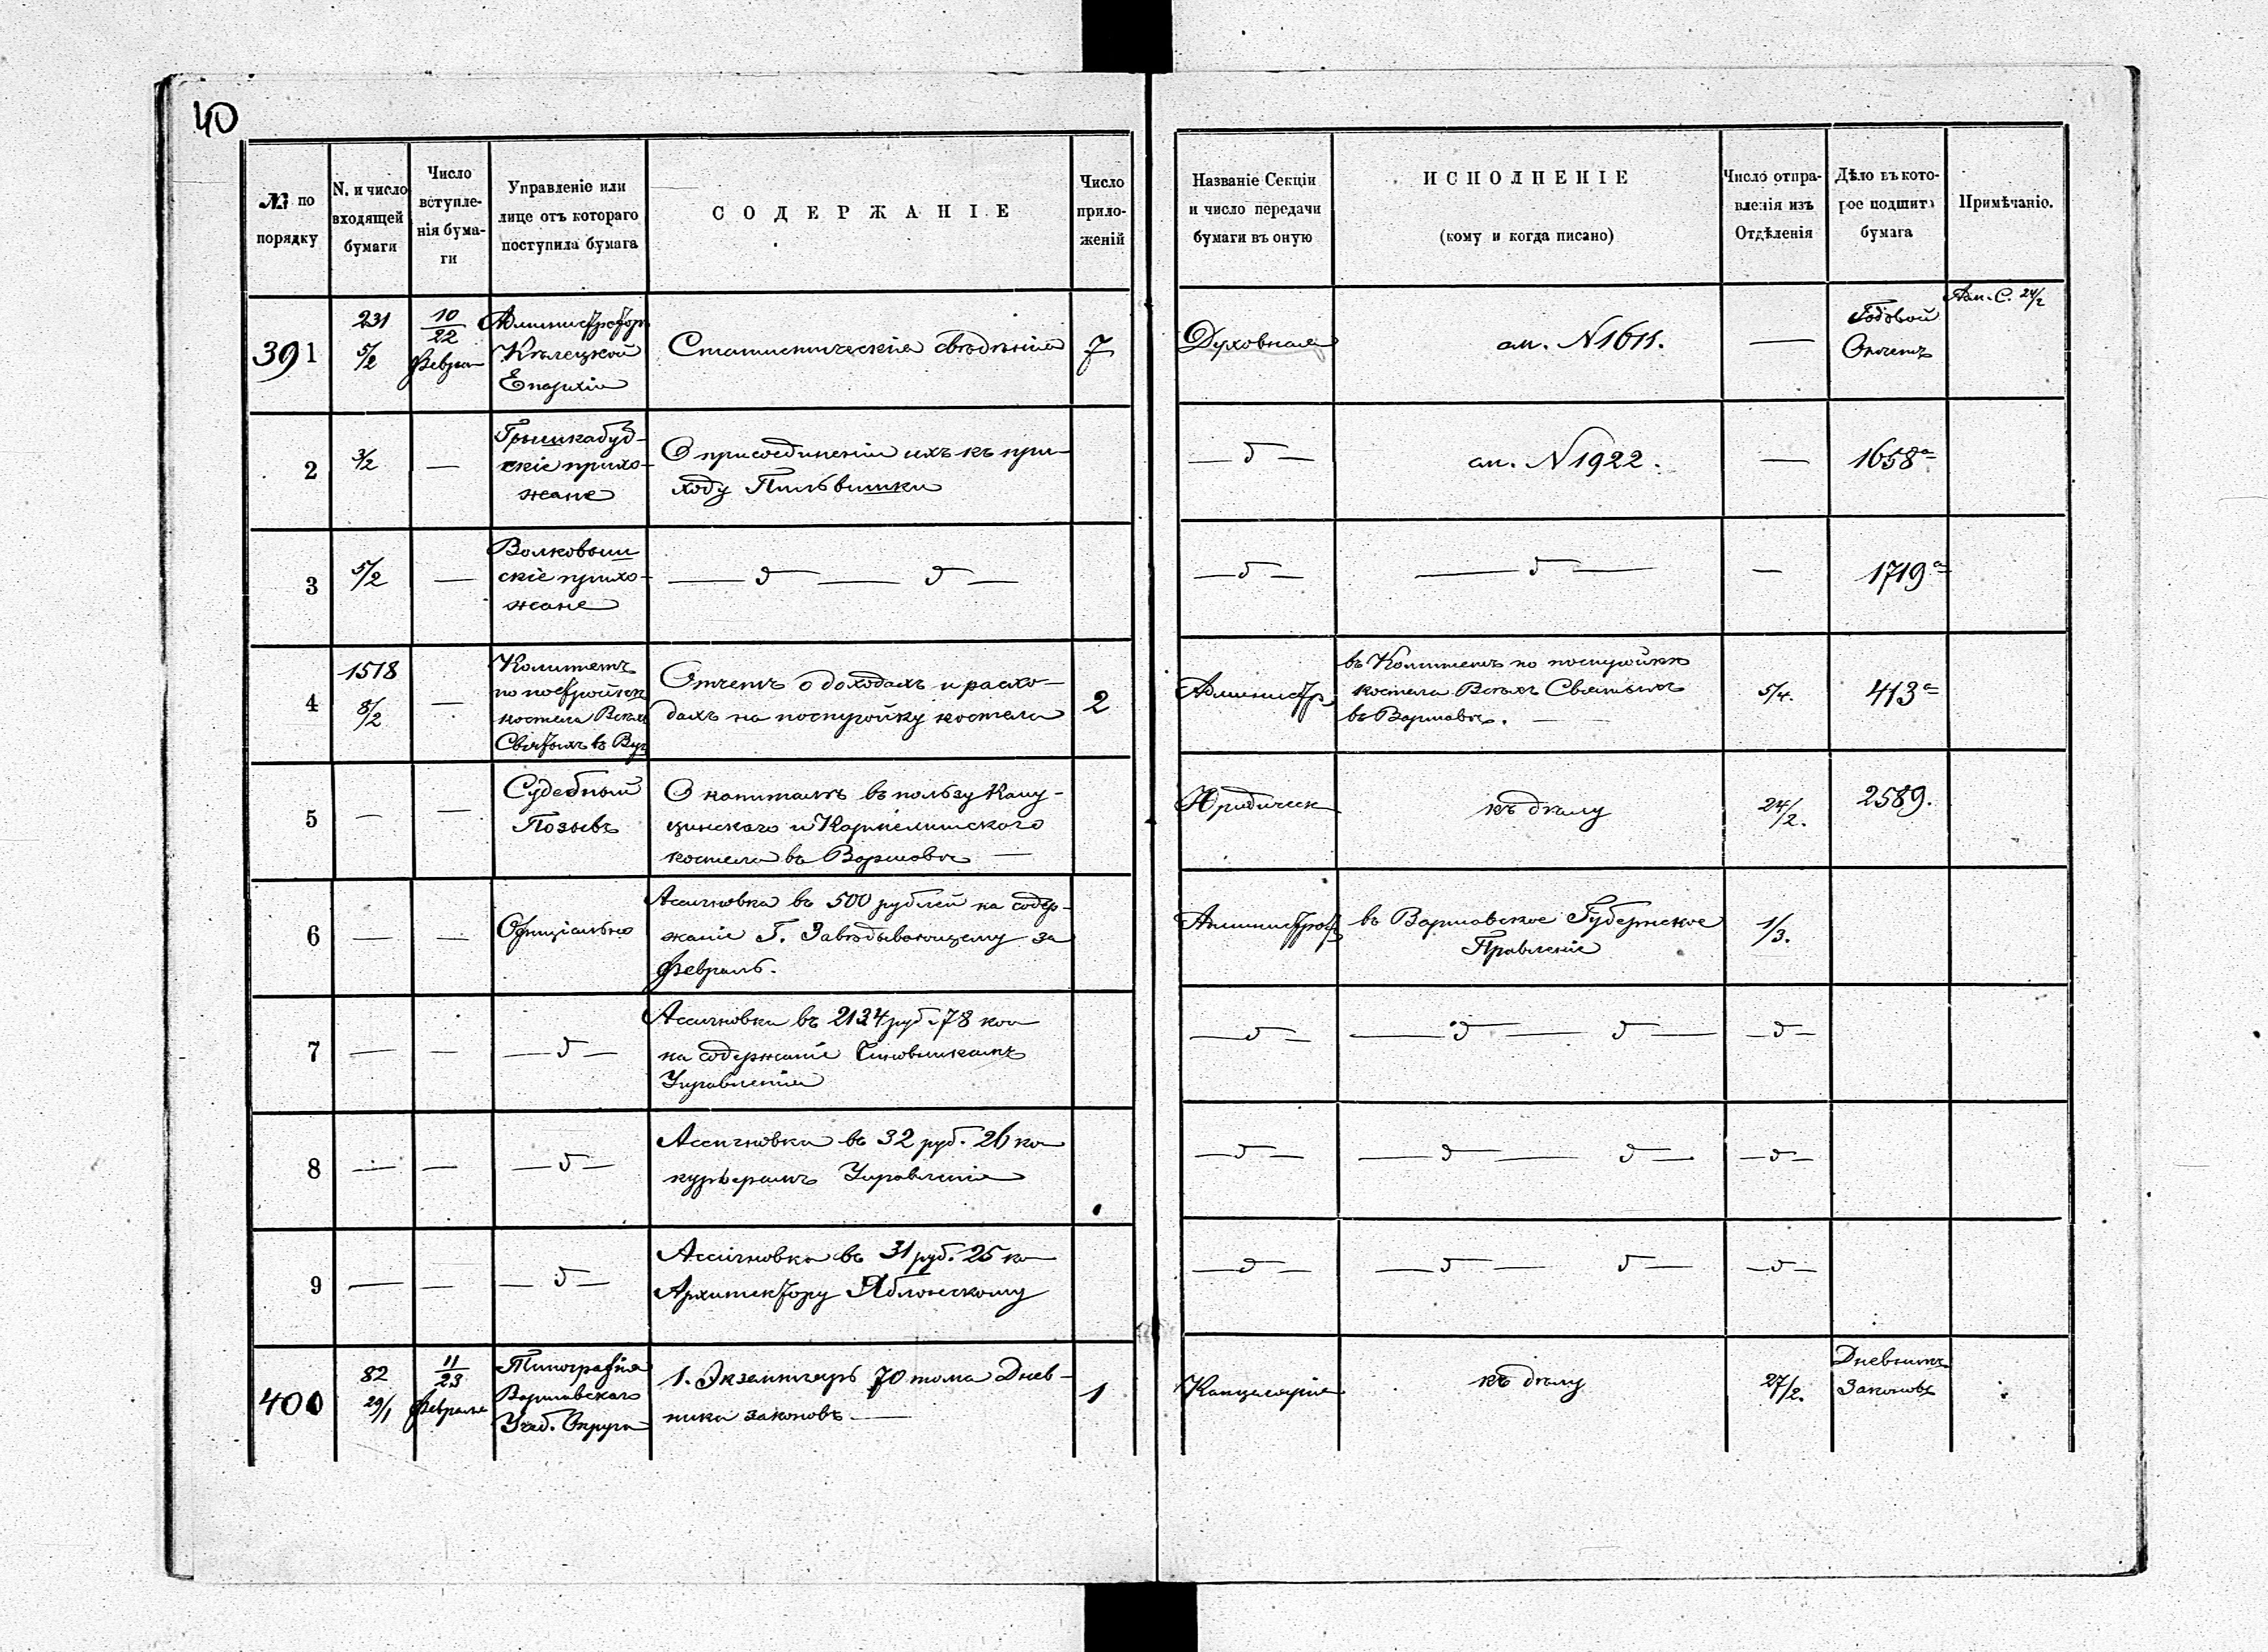 40
№ по порядку
N. и число входящей бумаги
Число вступле-
нія бума-
ги
Управленіе или
лице отъ котораго
поступила бумага
СОДЕРЖАНІЕ
Число
прило-
женій
Названіе Секціи
и число передачи
бумаги въ оную
ИСПОЛНЕНІЕ
(кому и когда писано)
Число отпра-
вленія изъ
Отдѣленія
Дѣло въ кото-
рое подшита
бумага
Примѣчаніе.
391
231
5/2
10/22
Феврал
Администраторъ
Кѣлецкой
Епархіи
Статистическія свѣдѣнія
7
Духовная
ст. N 1611.
—
Годовой
Отчетъ
24/2
2
3/2
—
Грышкабуд-
скіе прихо-
жане
О присоединеніи ихъ къ при-
ходу Пильвишки
— д —
ст. N 1922.
—
1658а
3
5/2
—
Волковыш
скіе прихо-
жане
— д — д —
— д —
— д —
—
1719а
4
1518
8/2
—
Комитетъ
по постройкѣ
костела Всѣхъ
Святыхъ въ Вар
Отчетъ о доходахъ и расхо-
дахъ на постройку костела
2
Администр
въ Комитетъ по постройкѣ
костела Всѣхъ Святыхъ
въ Варшавѣ. —
5/4.
413а
5
—
—
Судебный
Позывъ
О капиталѣ въ пользу Капу-
цинскаго и Кармелитскаго
костела въ Варшавѣ —
Юридическ
къ дѣлу
24/2.
2589.
6
—
—
Офиціально
Ассигновка въ 500 рублей на содер-
жаніе Г. Завѣдывающему за
Февраль.
Администрат
въ Варшавское Губернское
Правленіе
1/3.
7
—
—
— д —
Ассигновка въ 2134 руб. 78 коп
на содержаніе Чиновникамъ
Управленія
— д —
— д — д —
— д —
8
—
—
— д —
Ассигновка въ 32 руб. 26 ко
курьерамъ Управленія
— д —
— д — д —
— д —
9
—
—
— д —
Ассигновка въ 31 руб. 25 ко
Архитектору Яблонскому
— д —
— д — д —
— д —
400
82
29/1
11/23
Февраля
Типографія
Варшавскаго
Учеб. Округа
1. Экземпляръ 70 тома Днев-
ника законовъ —
1
Канцелярія
къ дѣлу
27/2.
Дневникъ
Законовъ